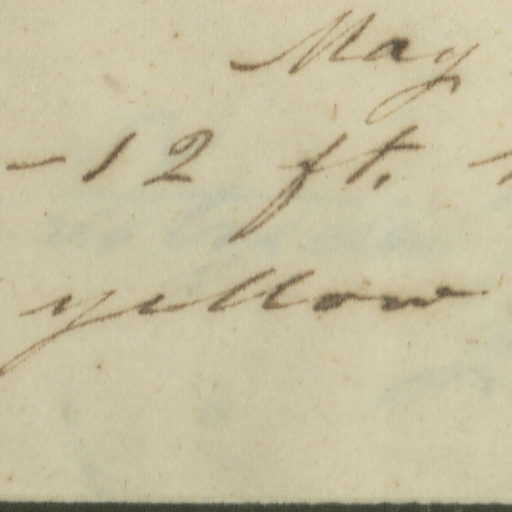 May
-12 ft.
yellow